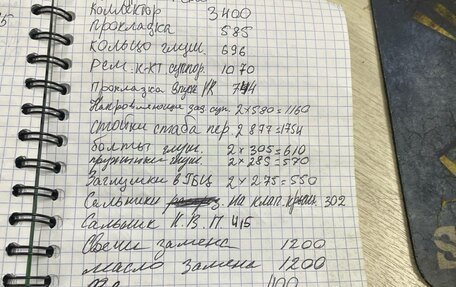 коллектор 3400
прокладка 585
кольцо глуш. 696
рем. к-кт суппор. 1070
Прокладка впуск 744
Направляющие зад суп. 2×580=1160
стойки стаба пер 2 877=1754
болты глуш. 2×305=610
пружинки глуш. 2×285=570
Заглушки в ГБЦ 2×275=550
Сальники на клап. крыш 302
Сальник К.В.П. 415
Свечи замена 1200
масло замена 1200